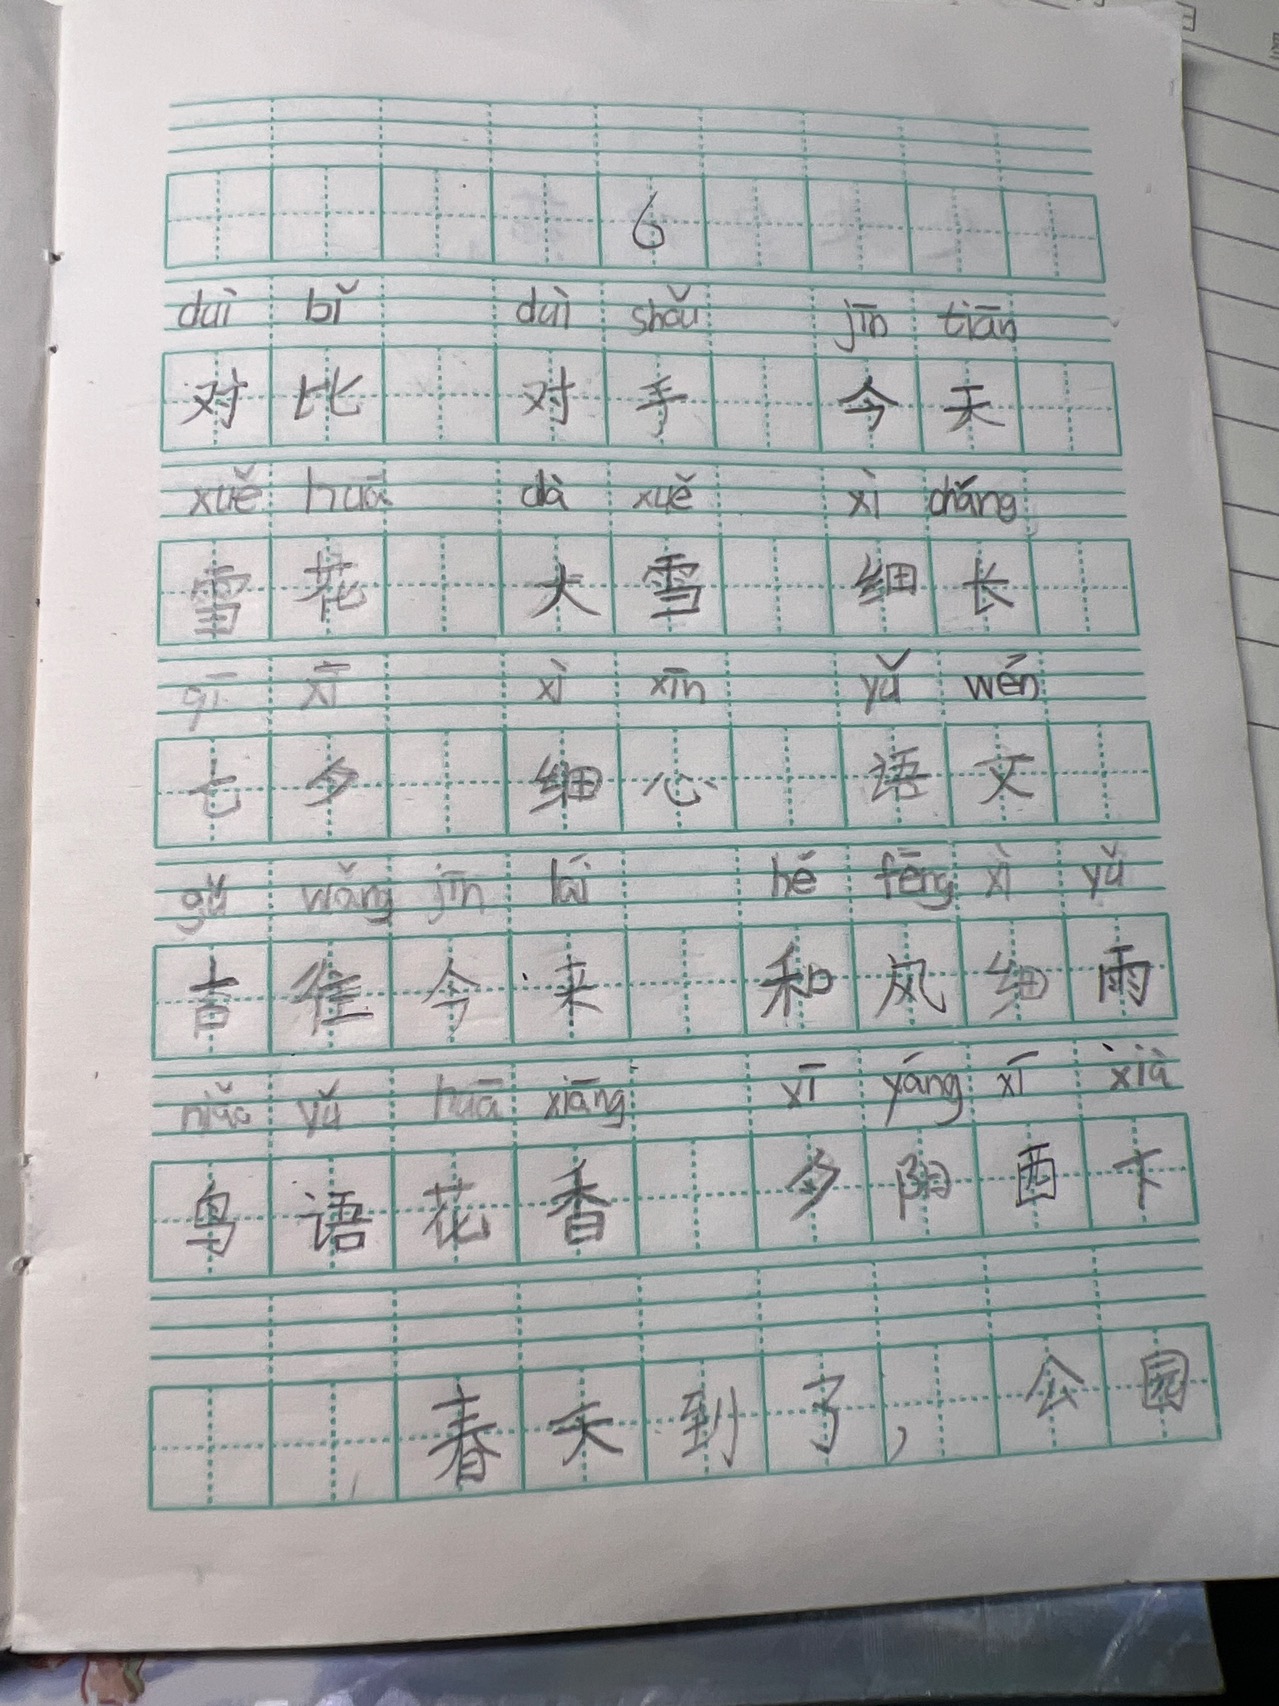 6
duì bǐ duì shǒu jīn tiān
对比 对手 今天
xuě huā dà xuě xì cháng
雪花 大雪 细长
qī xī xì xīn yǔ wén
七夕 细心 语文
gǔ wǎng jīn lái hé fēng xì yǔ
古往今来 和风细雨
niǎo yǔ huā xiāng xī yáng xī xià
鸟语花香 夕阳西下
春天到了，公园